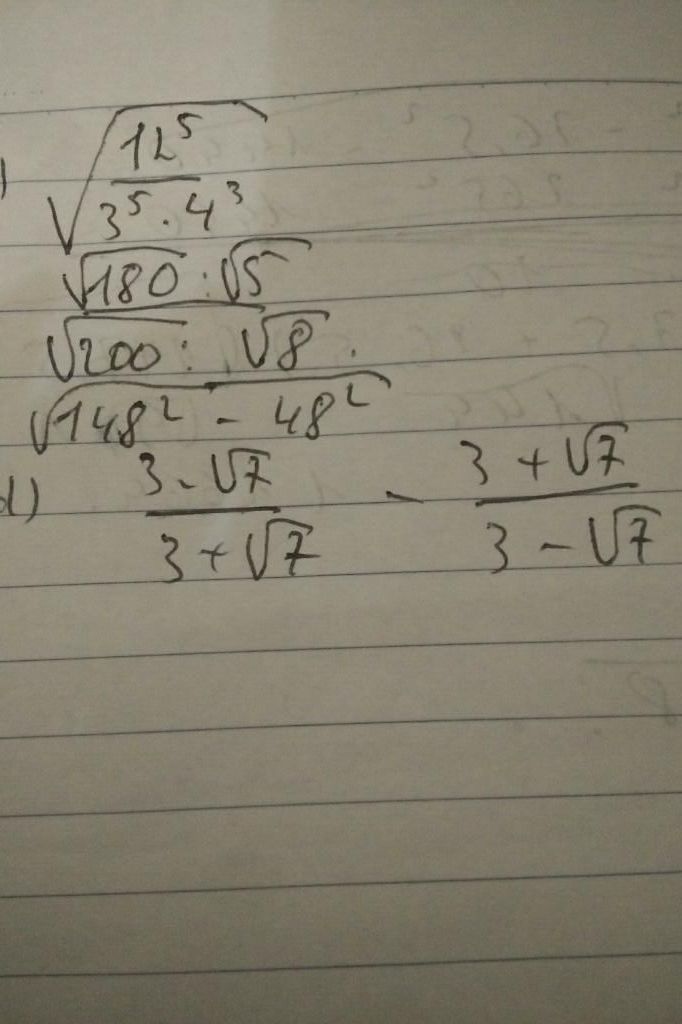 ) √(12⁵ / (3⁵ · 4³))
√180 : √5
√200 : √8 .
√(148² - 48²)
d) (3 - √7) / (3 + √7) - (3 + √7) / (3 - √7)